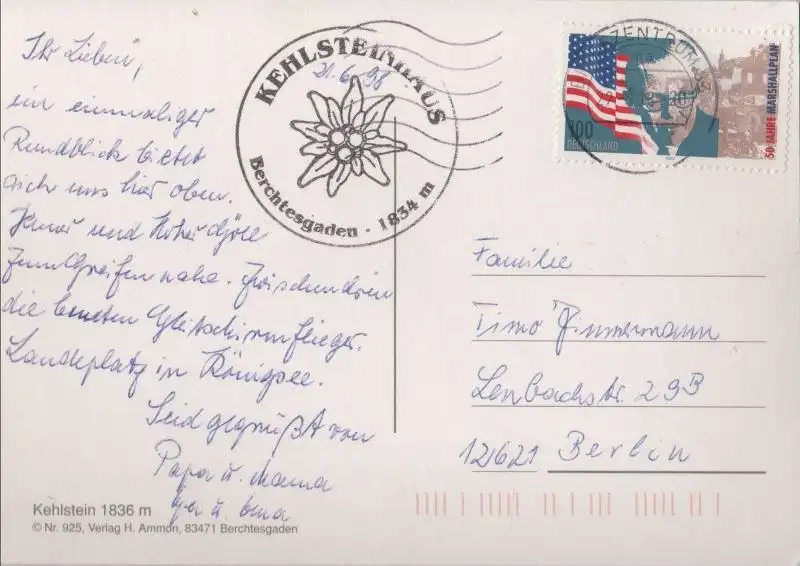 Ihr Lieben,
ein einmaliger
Rundblick bietet
sich uns hier oben.
Jenner und Hoher Göll
zum Greifen nahe. Zwischendrin
die bunten Gleitschirmflieger.
Landeplatz in Königsee.
Seid gegrüßt von
Papa u. Mama
u.
Kehlstein 1836 m
© Nr. 925, Verlag H. Ammon, 83471 Berchtesgaden
KEHLSTEINHAUS
21.6.98
Berchtesgaden - 1834 m
ZENTRUM
100
DEUTSCHLAND
50 JAHRE MARSHALLPLAN
Familie
Timo Zimmermann
Lenbachstr. 29B
12621 Berlin